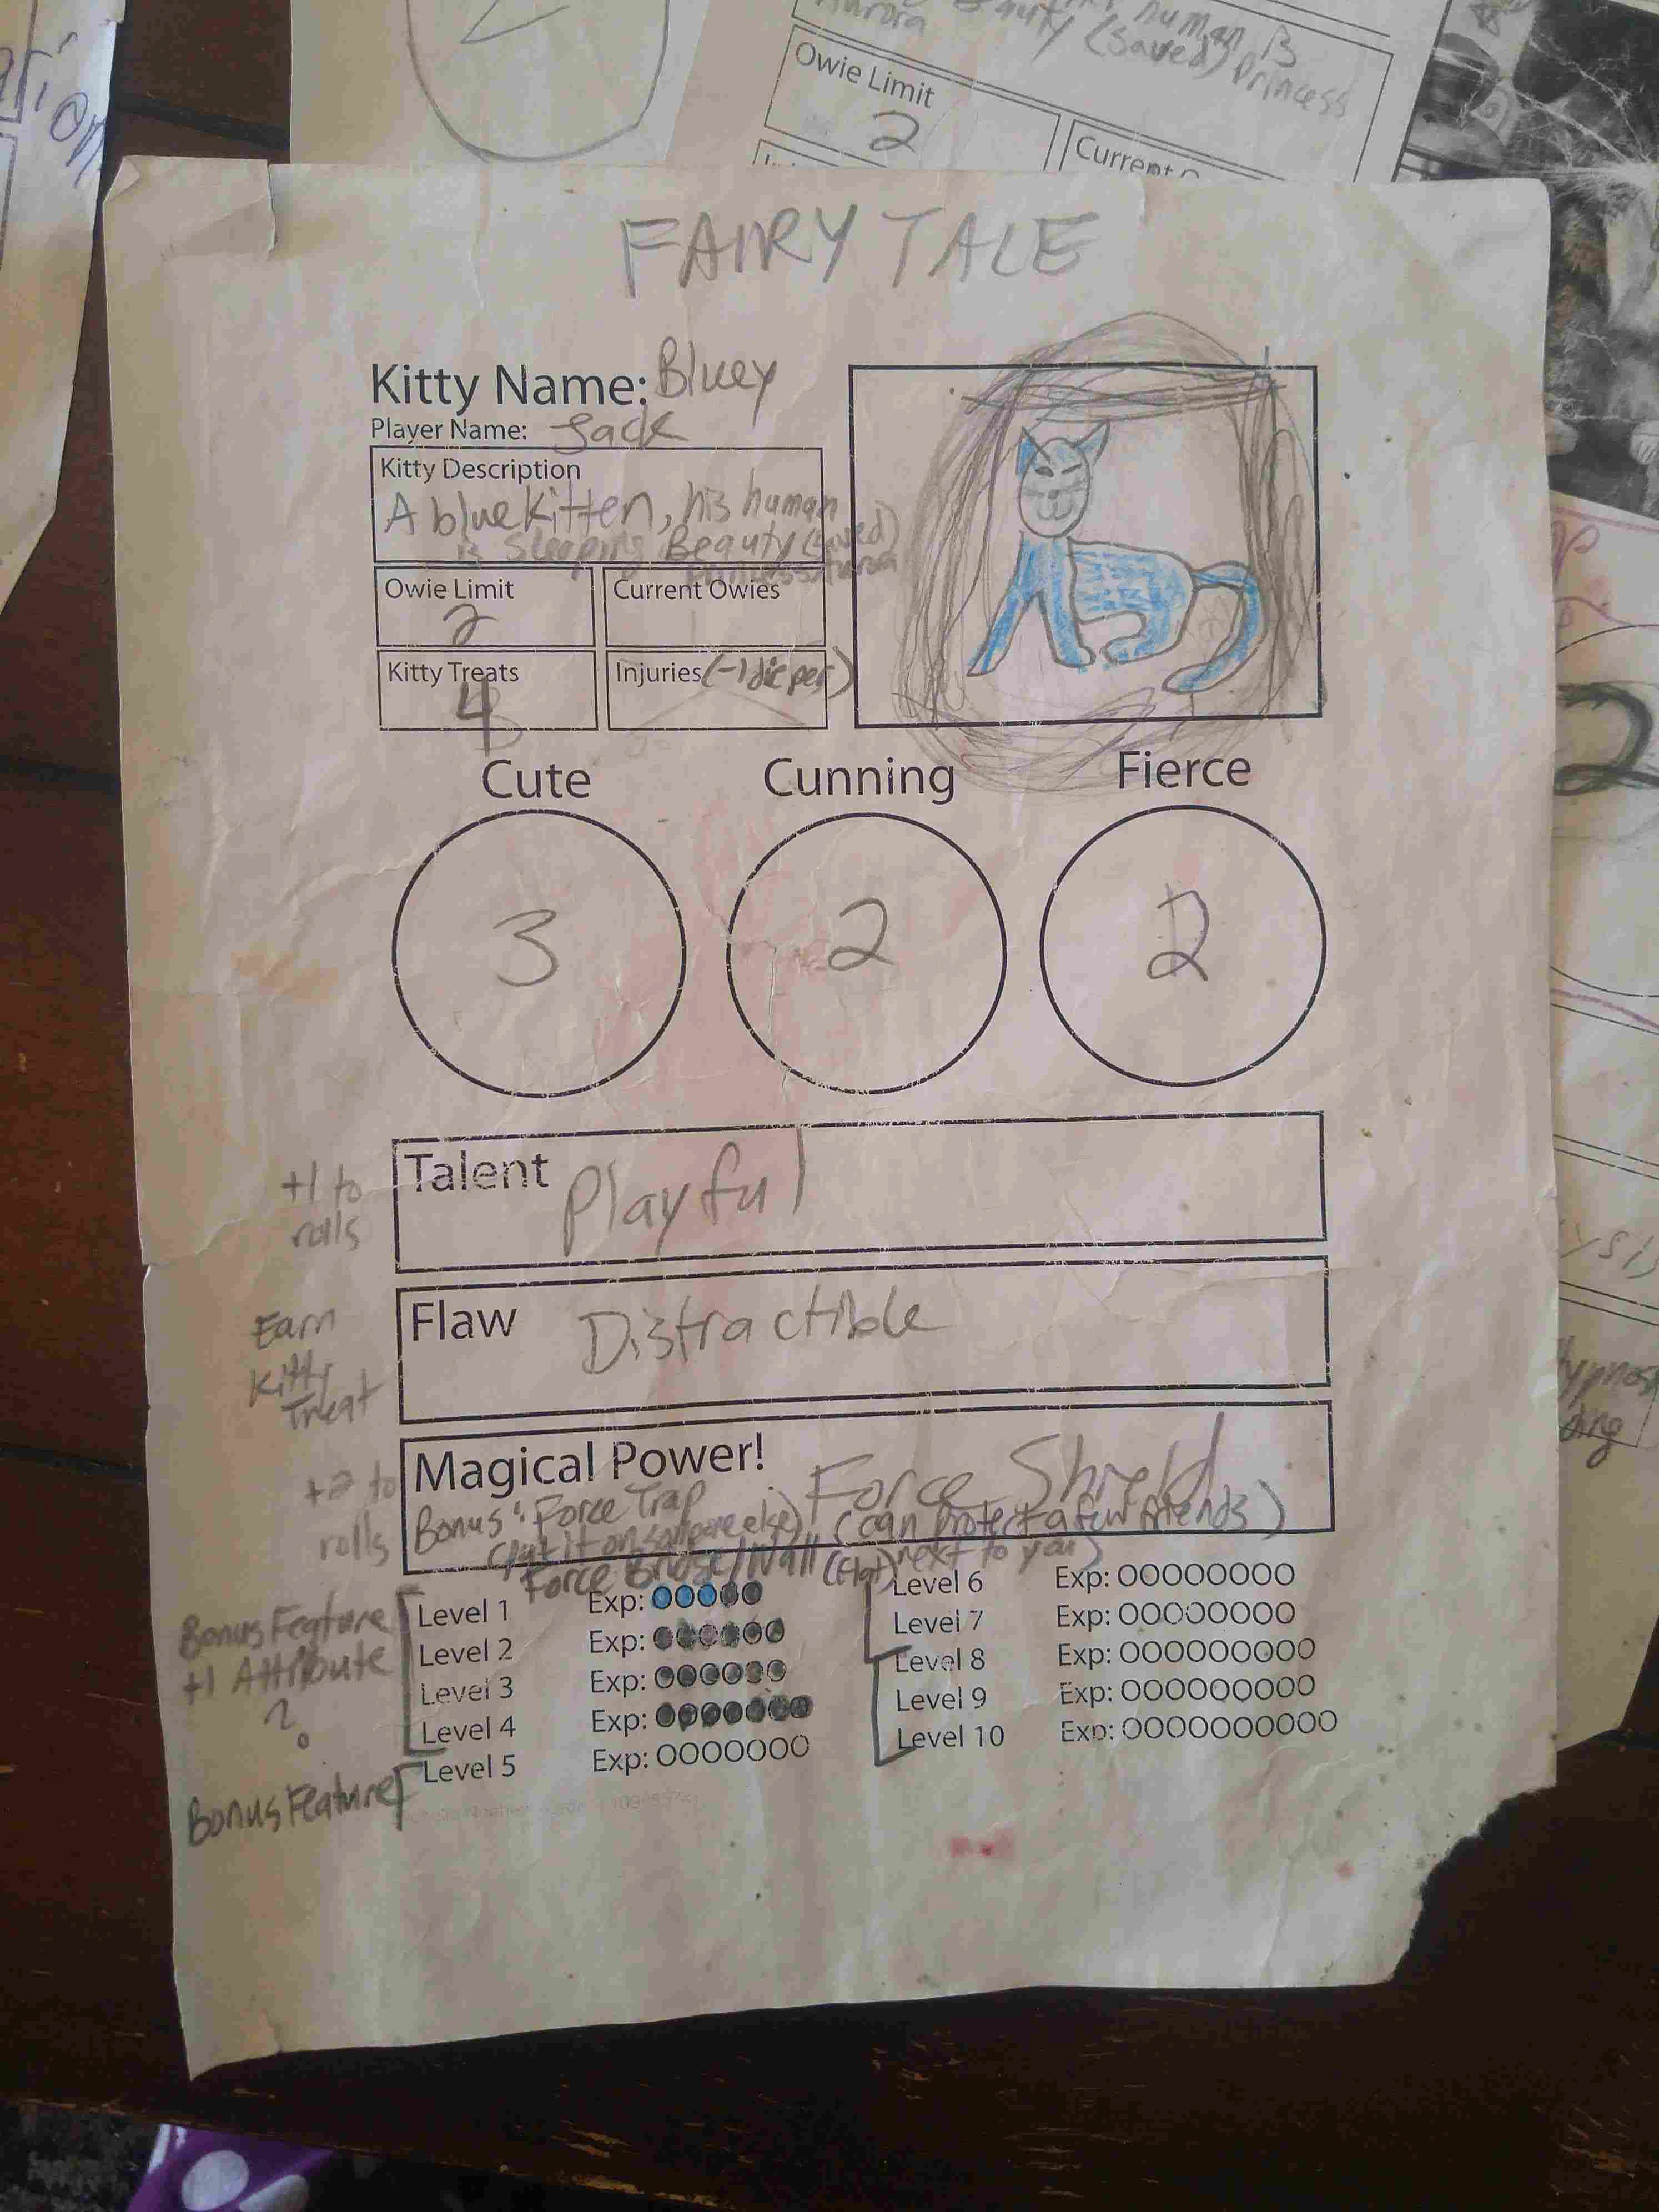 human is
Beauty (saved) Princess
Aurora
Owie Limit
2
FAIRY TALE
Kitty Name: Bluey
Player Name: Jack
Kitty Description
A blue kitten, his human
is Sleeping Beauty (saved)
Owie Limit
2
Current Owies
Kitty Treats
4
Injuries (-1 die per)
Cute
Cunning
Fierce
3
2
2
+1 to
rolls
Talent Playful
Earn
Kitty
Treat
Flaw Distractible
+2 to
rolls
Magical Power! Force Shield
Bonus: Force Trap
(put it on someone else) (can protect a few friends
next to you)
Force Bridge/Wall (flat)
Bonus Feature
+1 Attribute
?
Level 1 Exp: OOOOO
Level 2 Exp: OOOOOO
Level 3 Exp: OOOOOO
Level 4 Exp: OOOOOOO
Level 5 Exp: OOOOOOO
Bonus Feature
Level 6 Exp: OOOOOOOO
Level 7 Exp: OOOOOOOO
Level 8 Exp: OOOOOOOOO
Level 9 Exp: OOOOOOOOO
Level 10 Exp: OOOOOOOOOO
2